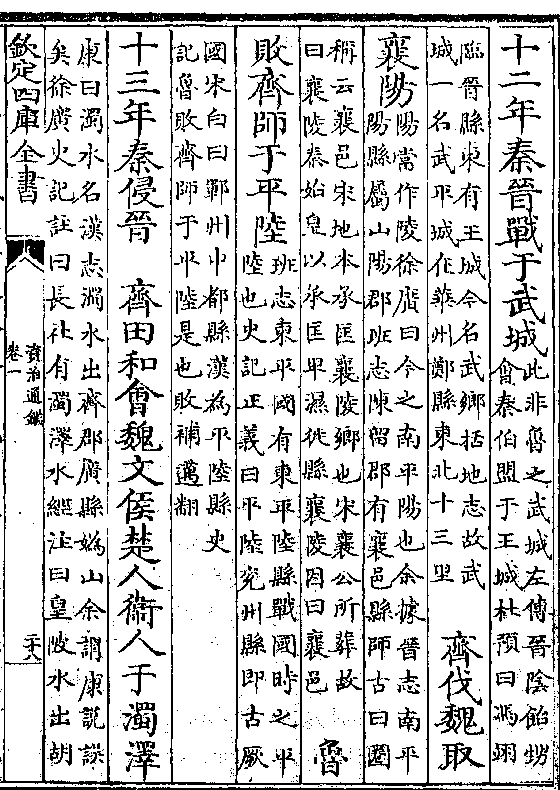 十二年秦晉戰于武城
此非魯之武城左傳晉陰飴甥
會秦伯盟于王城杜預曰馮翊
臨晉縣東有王城今名武鄉括地志故武
城一名武平城在華州鄭縣東北十三里
齊伐魏取
襄陽
陽當作陵徐廣曰今之南平陽也余據晉志南平
陽縣屬山陽郡班志陳留郡有襄邑縣師古曰圈
稱云襄邑宋地本承匡襄陵鄉也宋襄公所葬故
曰襄陵秦始皇以承匡卑濕徙縣襄陵因曰襄邑
魯
敗齊師于平陸
班志東平國有東平陸縣戰國時之平
陸也史記正義曰平陸兗州縣即古厥
國宋白曰鄆州中都縣漢為平陸縣史
記魯敗齊師于平陸是也敗補邁翻
十三年秦侵晉　齊田和會魏文侯楚人衛人于濁澤
康曰濁水名漢志濁水出齊郡廣縣媯山余謂康說誤
矣徐廣史記註曰長社有濁澤水經注曰皇陂水出胡
欽定四庫全書
資治通鑑
卷一
二十八